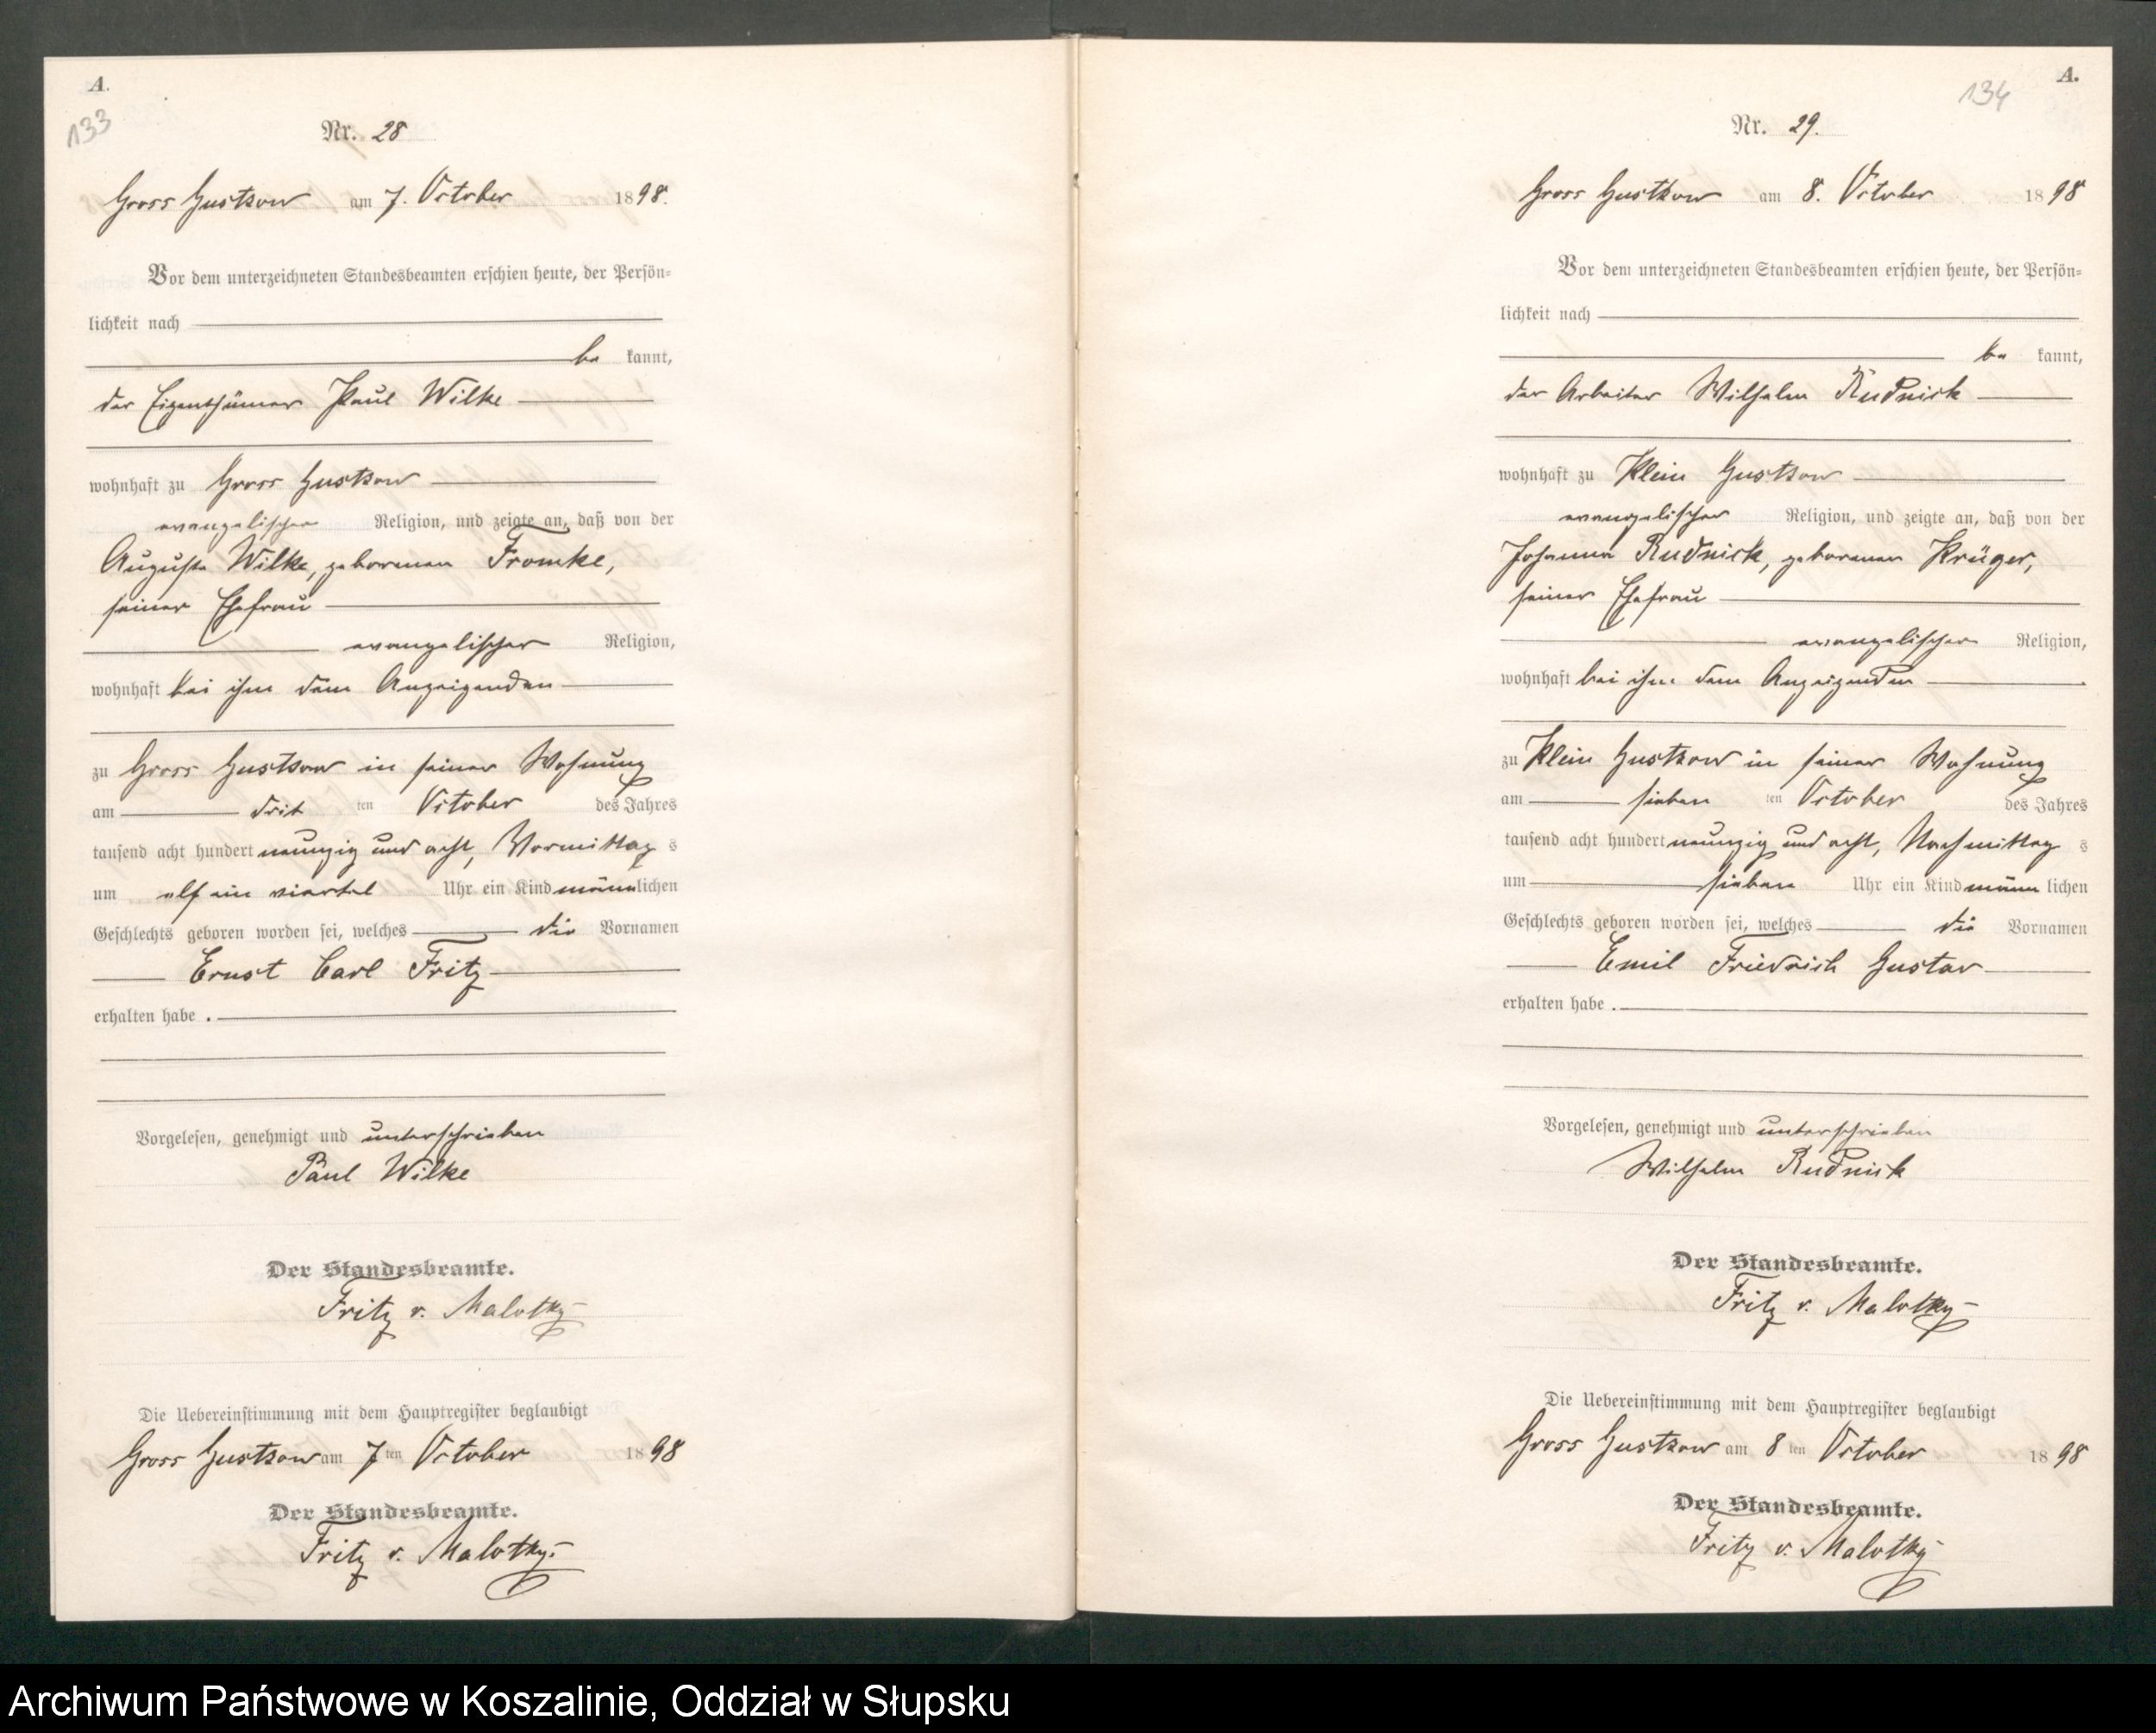 A.
133
Nr. 28
Gross Gustkow am 7. October 1898.
Vor dem unterzeichneten Standesbeamten erschien heute, der Persön=
lichkeit nach
be kannt,
der Eigenthümer Paul Wilke
wohnhaft zu Gross Gustkow
evangelischer Religion, und zeigte an, daß von der
Auguste Wilke, geborenen Fromke,
seiner Ehefrau
evangelischer Religion,
wohnhaft bei ihm dem Anzeigenden
zu Gross Gustkow in seiner Wohnung
am drit ten October des Jahres
tausend acht hundert neunzig und acht, Vormittag s
um elf ein viertel Uhr ein Kind männlichen
Geschlechts geboren worden sei, welches die Vornamen
Ernst Carl Fritz
erhalten habe .
Vorgelesen, genehmigt und unterschrieben
Paul Wilke
Der Standesbeamte.
Fritz v. Malotky
Die Uebereinstimmung mit dem Hauptregister beglaubigt
Gross Gustkow am 7 ten October 1898
Der Standesbeamte.
Fritz v. Malotky.
A.
134
Nr. 29.
Gross Gustkow am 8. October 1898
Vor dem unterzeichneten Standesbeamten erschien heute, der Persön=
lichkeit nach
be kannt,
der Arbeiter Wilhelm Rudnick
wohnhaft zu Klein Gustkow
evangelischer Religion, und zeigte an, daß von der
Johanna Rudnick, geborenen Krüger,
seiner Ehefrau
evangelischer Religion,
wohnhaft bei ihm dem Anzeigenden
zu Klein Gustkow in seiner Wohnung
am sieben ten October des Jahres
tausend acht hundert neunzig und acht, Nachmittag s
um sieben Uhr ein Kind männ lichen
Geschlechts geboren worden sei, welches die Vornamen
Emil Friedrich Gustav
erhalten habe .
Vorgelesen, genehmigt und unterschrieben
Wilhelm Rudnick
Der Standesbeamte.
Fritz v. Malotky
Die Uebereinstimmung mit dem Hauptregister beglaubigt
Gross Gustkow am 8 ten October 1898
Der Standesbeamte.
Fritz v. Malotky
Archiwum Państwowe w Koszalinie, Oddział w Słupsku